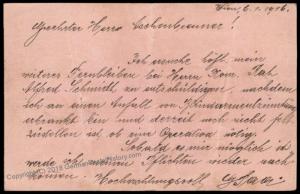 Wien, 6.1.1916.
Geehrter Herr Eschenbrenner!
Ich ersuche höfl. mein
weiteres Fernbleiben bei Herrn Dom. Kap.
Alfred Schmidt zu entschuldigen, nachdem
ich an einem Anfall von Blinddarmentzündung
erkrankt bin und derzeit noch nicht fest
zustellen ist ob eine Operation nötig.
Sobald es mir möglich ist
werde ich meinen Pflichten wieder nach
kommen. Hochachtungsvoll
Copyright 2018 GermanPostalHistory.com